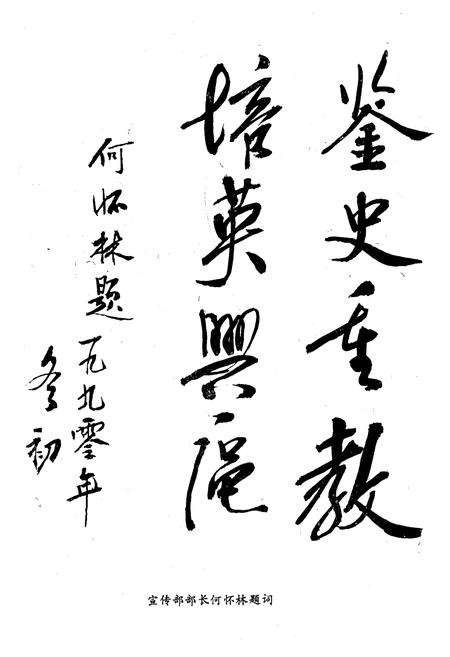 鉴史重教
培英興扈
何怀林题一九九零年
冬初
宣传部部长何怀林题词